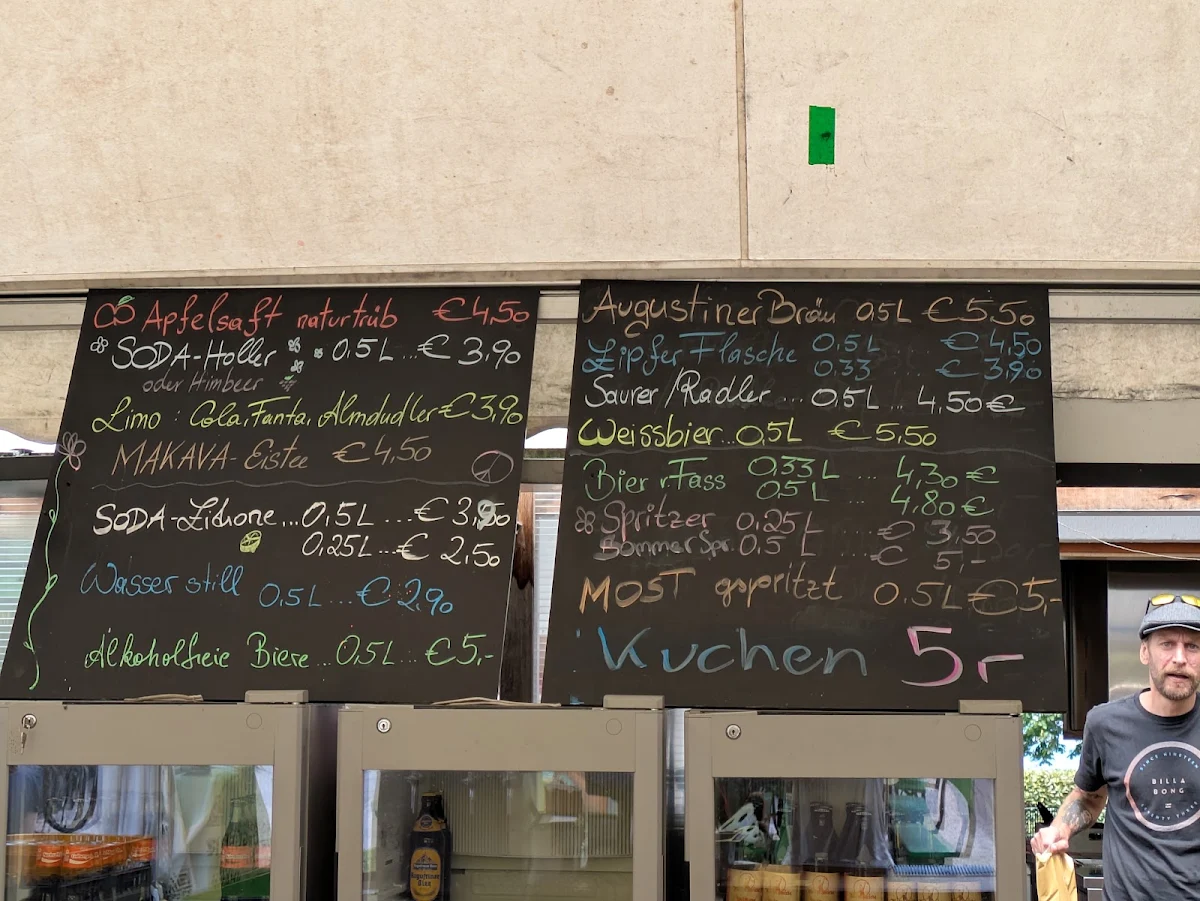 Apfelsaft naturtrüb €4,50
SODA-Holler 0,5L...€ 3,90
oder Himbeer
Limo : Cola, Fanta, Almdudler €3,90
MAKAVA-Eistee €4,50
SODA-Zitrone...0,5L ...€ 3,90
0,25L...€ 2,50
Wasser still 0,5L...€ 2,90
Alkoholfreie Biere...0,5L... €5,-
Augustiner Bräu 0,5L €5,50
Zipfer Flasche 0,5L €4,50
0,33 €3,90
Saurer/Radler...0,5L...4,50€
Weissbier...0,5L €5,50
Bier v Fass 0,33L ... 4,30€
0,5L ... 4,80€
Spritzer 0,25L € 3,50
Sommer Spr. 0,5L ... € 5,-
MOST gspritzt 0,5L €5,-
Kuchen 5,-
BILLA
BONG
Augustiner
Bräu